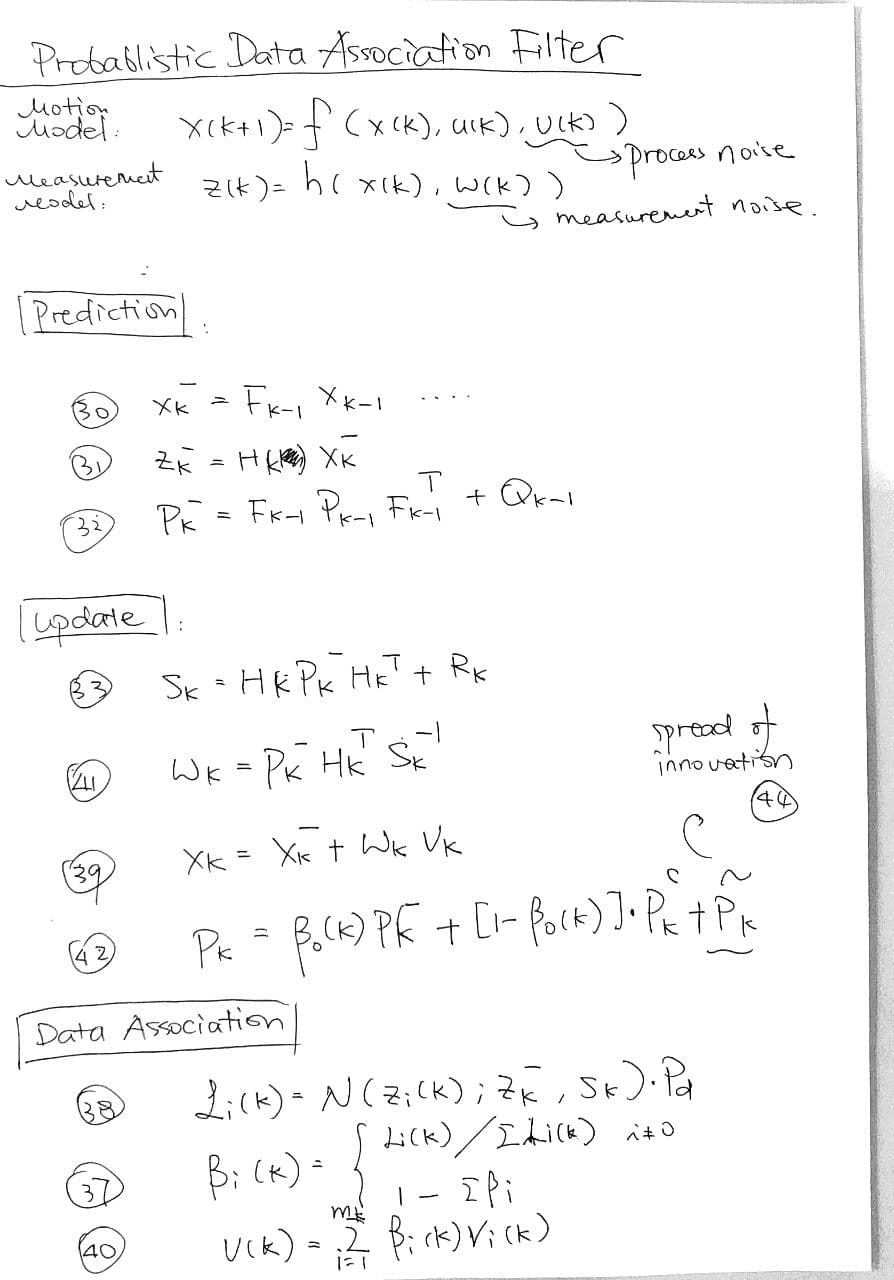 Probablistic Data Association Filter
Motion Model: x(k+1) = f (x(k), u(k), v(k))
process noise
Measurement model: z(k) = h( x(k), w(k))
measurement noise.
Prediction :
30 xₖ⁻ = Fₖ₋₁ xₖ₋₁ ....
31 zₖ⁻ = H(k) xₖ⁻
32 Pₖ⁻ = Fₖ₋₁ Pₖ₋₁ Fₖ₋₁ᵀ + Qₖ₋₁
update :
33 Sₖ = Hₖ Pₖ⁻ Hₖᵀ + Rₖ
41 Wₖ = Pₖ⁻ Hₖᵀ Sₖ⁻¹
spread of
innovation
44
39 xₖ = xₖ⁻ + Wₖ Vₖ
42 Pₖ = β₀(k) Pₖ⁻ + [1- β₀(k)]·Pₖᶜ + P̃ₖ
Data Association
38 ℒᵢ(k) = N(zᵢ(k); zₖ⁻, Sₖ)·Pd
37 βᵢ(k) = { Lᵢ(k) / ΣLᵢ(k) i≠0
1 - Σβᵢ
40 v(k) = Σᵢ₌₁^mₖ βᵢ(k) Vᵢ(k)